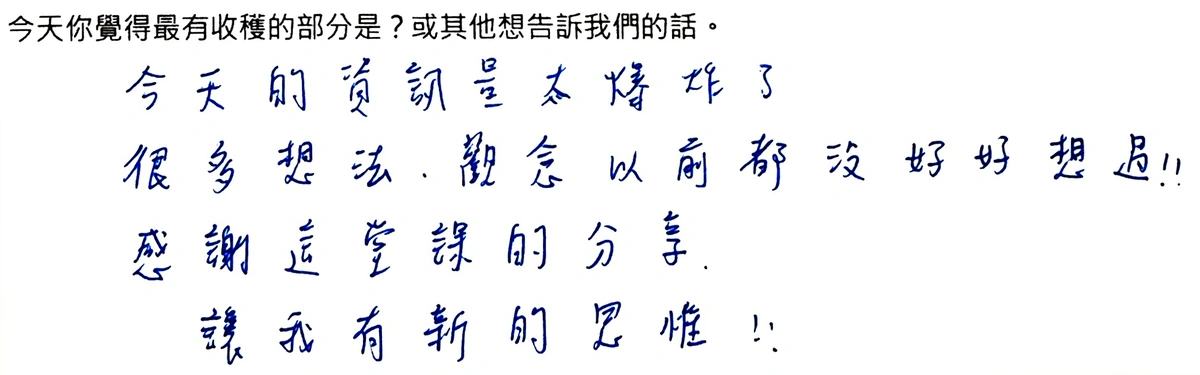 今天你覺得最有收穫的部分是？或其他想告訴我們的話。
今天的資訊量太爆炸了
很多想法、觀念以前都沒好好想過!!
感謝這堂課的分享.
讓我有新的思惟!!